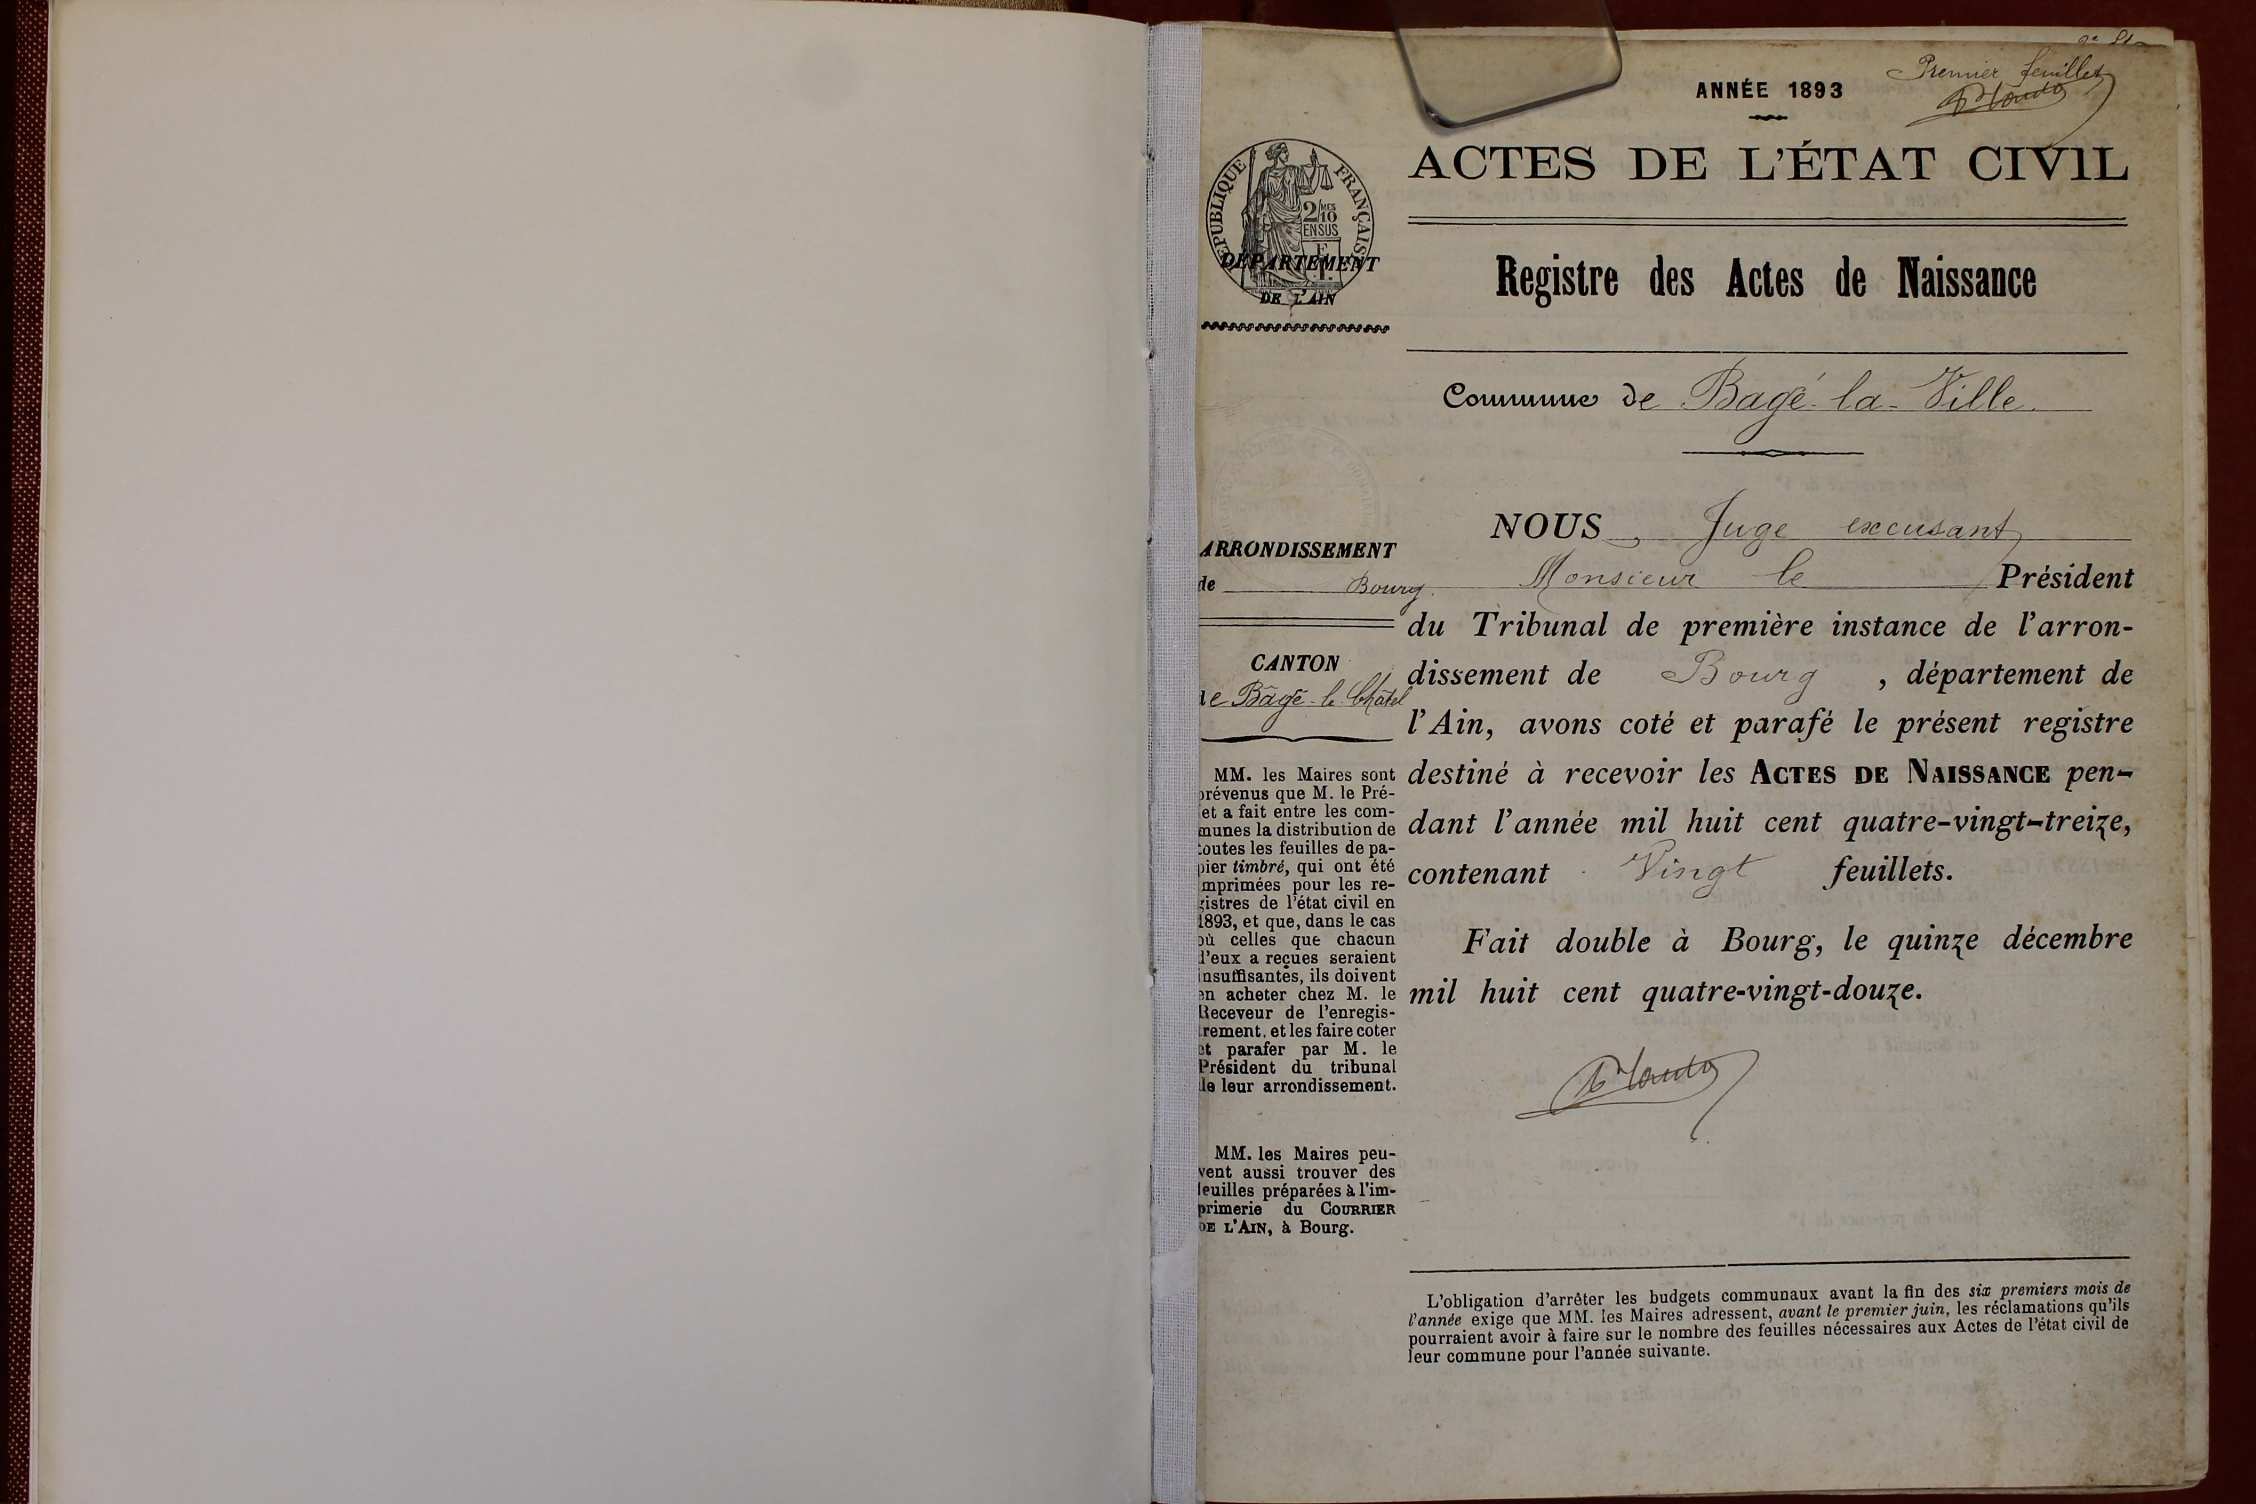 Premier feuillet
ANNÉE 1893
ACTES DE L'ÉTAT CIVIL
RÉPUBLIQUE FRANÇAISE
2/10 MES
EN SUS
DÉPARTEMENT
DE L'AIN
Registre des Actes de Naissance
Commune de Bagé-la-Ville.
ARRONDISSEMENT
de Bourg.
CANTON
de Bâgé-le-Châtel
MM. les Maires sont
prévenus que M. le Pré-
fet a fait entre les com-
munes la distribution de
toutes les feuilles de pa-
pier timbré, qui ont été
imprimées pour les re-
gistres de l'état civil en
1893, et que, dans le cas
où celles que chacun
d'eux a reçues seraient
insuffisantes, ils doivent
en acheter chez M. le
Receveur de l'enregis-
trement, et les faire coter
et parafer par M. le
Président du tribunal
de leur arrondissement.
MM. les Maires peu-
vent aussi trouver des
feuilles préparées à l'im-
primerie du COURRIER
DE L'AIN, à Bourg.
NOUS, Juge excusant
Monsieur le Président
du Tribunal de première instance de l'arron-
dissement de Bourg, département de
l'Ain, avons coté et parafé le présent registre
destiné à recevoir les ACTES DE NAISSANCE pen-
dant l'année mil huit cent quatre-vingt-treize,
contenant Vingt feuillets.
Fait double à Bourg, le quinze décembre
mil huit cent quatre-vingt-douze.
L'obligation d'arrêter les budgets communaux avant la fin des six premiers mois de
l'année exige que MM. les Maires adressent, avant le premier juin, les réclamations qu'ils
pourraient avoir à faire sur le nombre des feuilles nécessaires aux Actes de l'état civil de
leur commune pour l'année suivante.